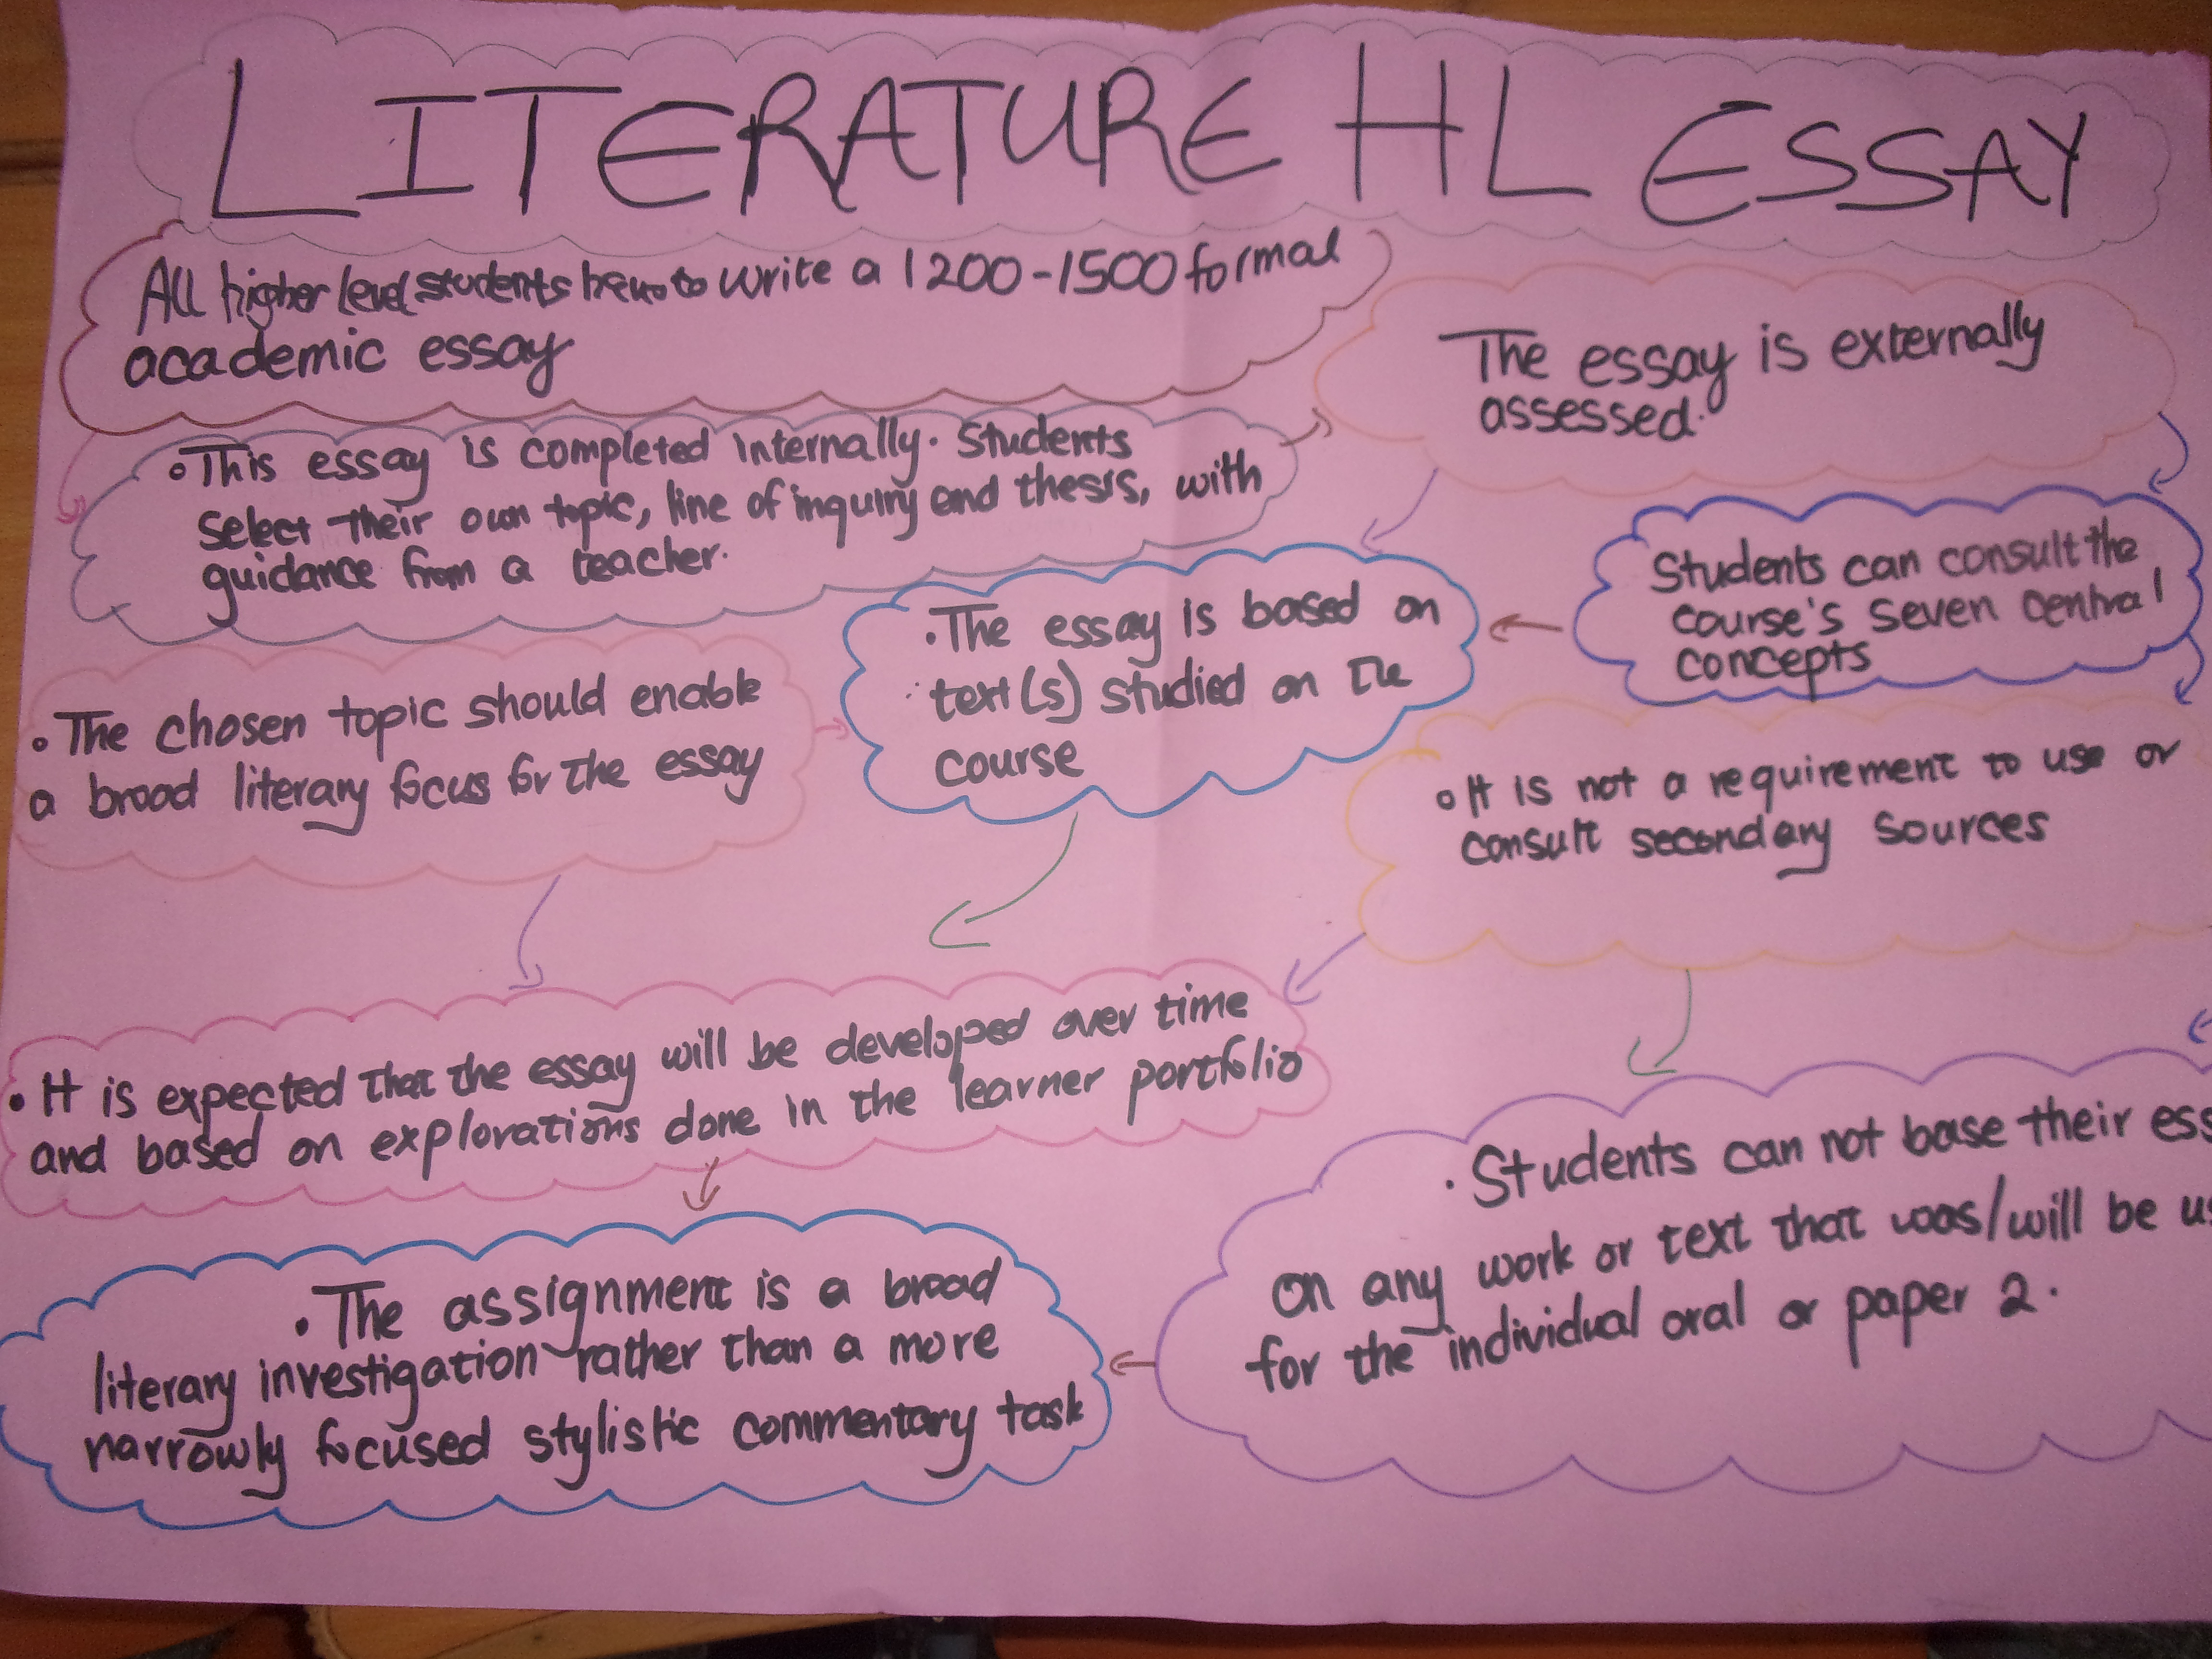 LITERATURE HL ESSAY
All higher level students have to write a 1200-1500 formal
academic essay
The essay is externally
assessed.
• This essay is completed internally. Students
select their own topic, line of inquiry and thesis, with
guidance from a teacher.
Students can consult the
course's seven central
concepts
• The essay is based on
text(s) studied on the
course
• The chosen topic should enable
a broad literary focus for the essay
• It is not a requirement to use or
consult secondary sources
• It is expected that the essay will be developed over time
and based on explorations done in the learner portfolio
• Students can not base their ess
on any work or text that was/will be us
for the individual oral or paper 2.
• The assignment is a broad
literary investigation rather than a more
narrowly focused stylistic commentary task